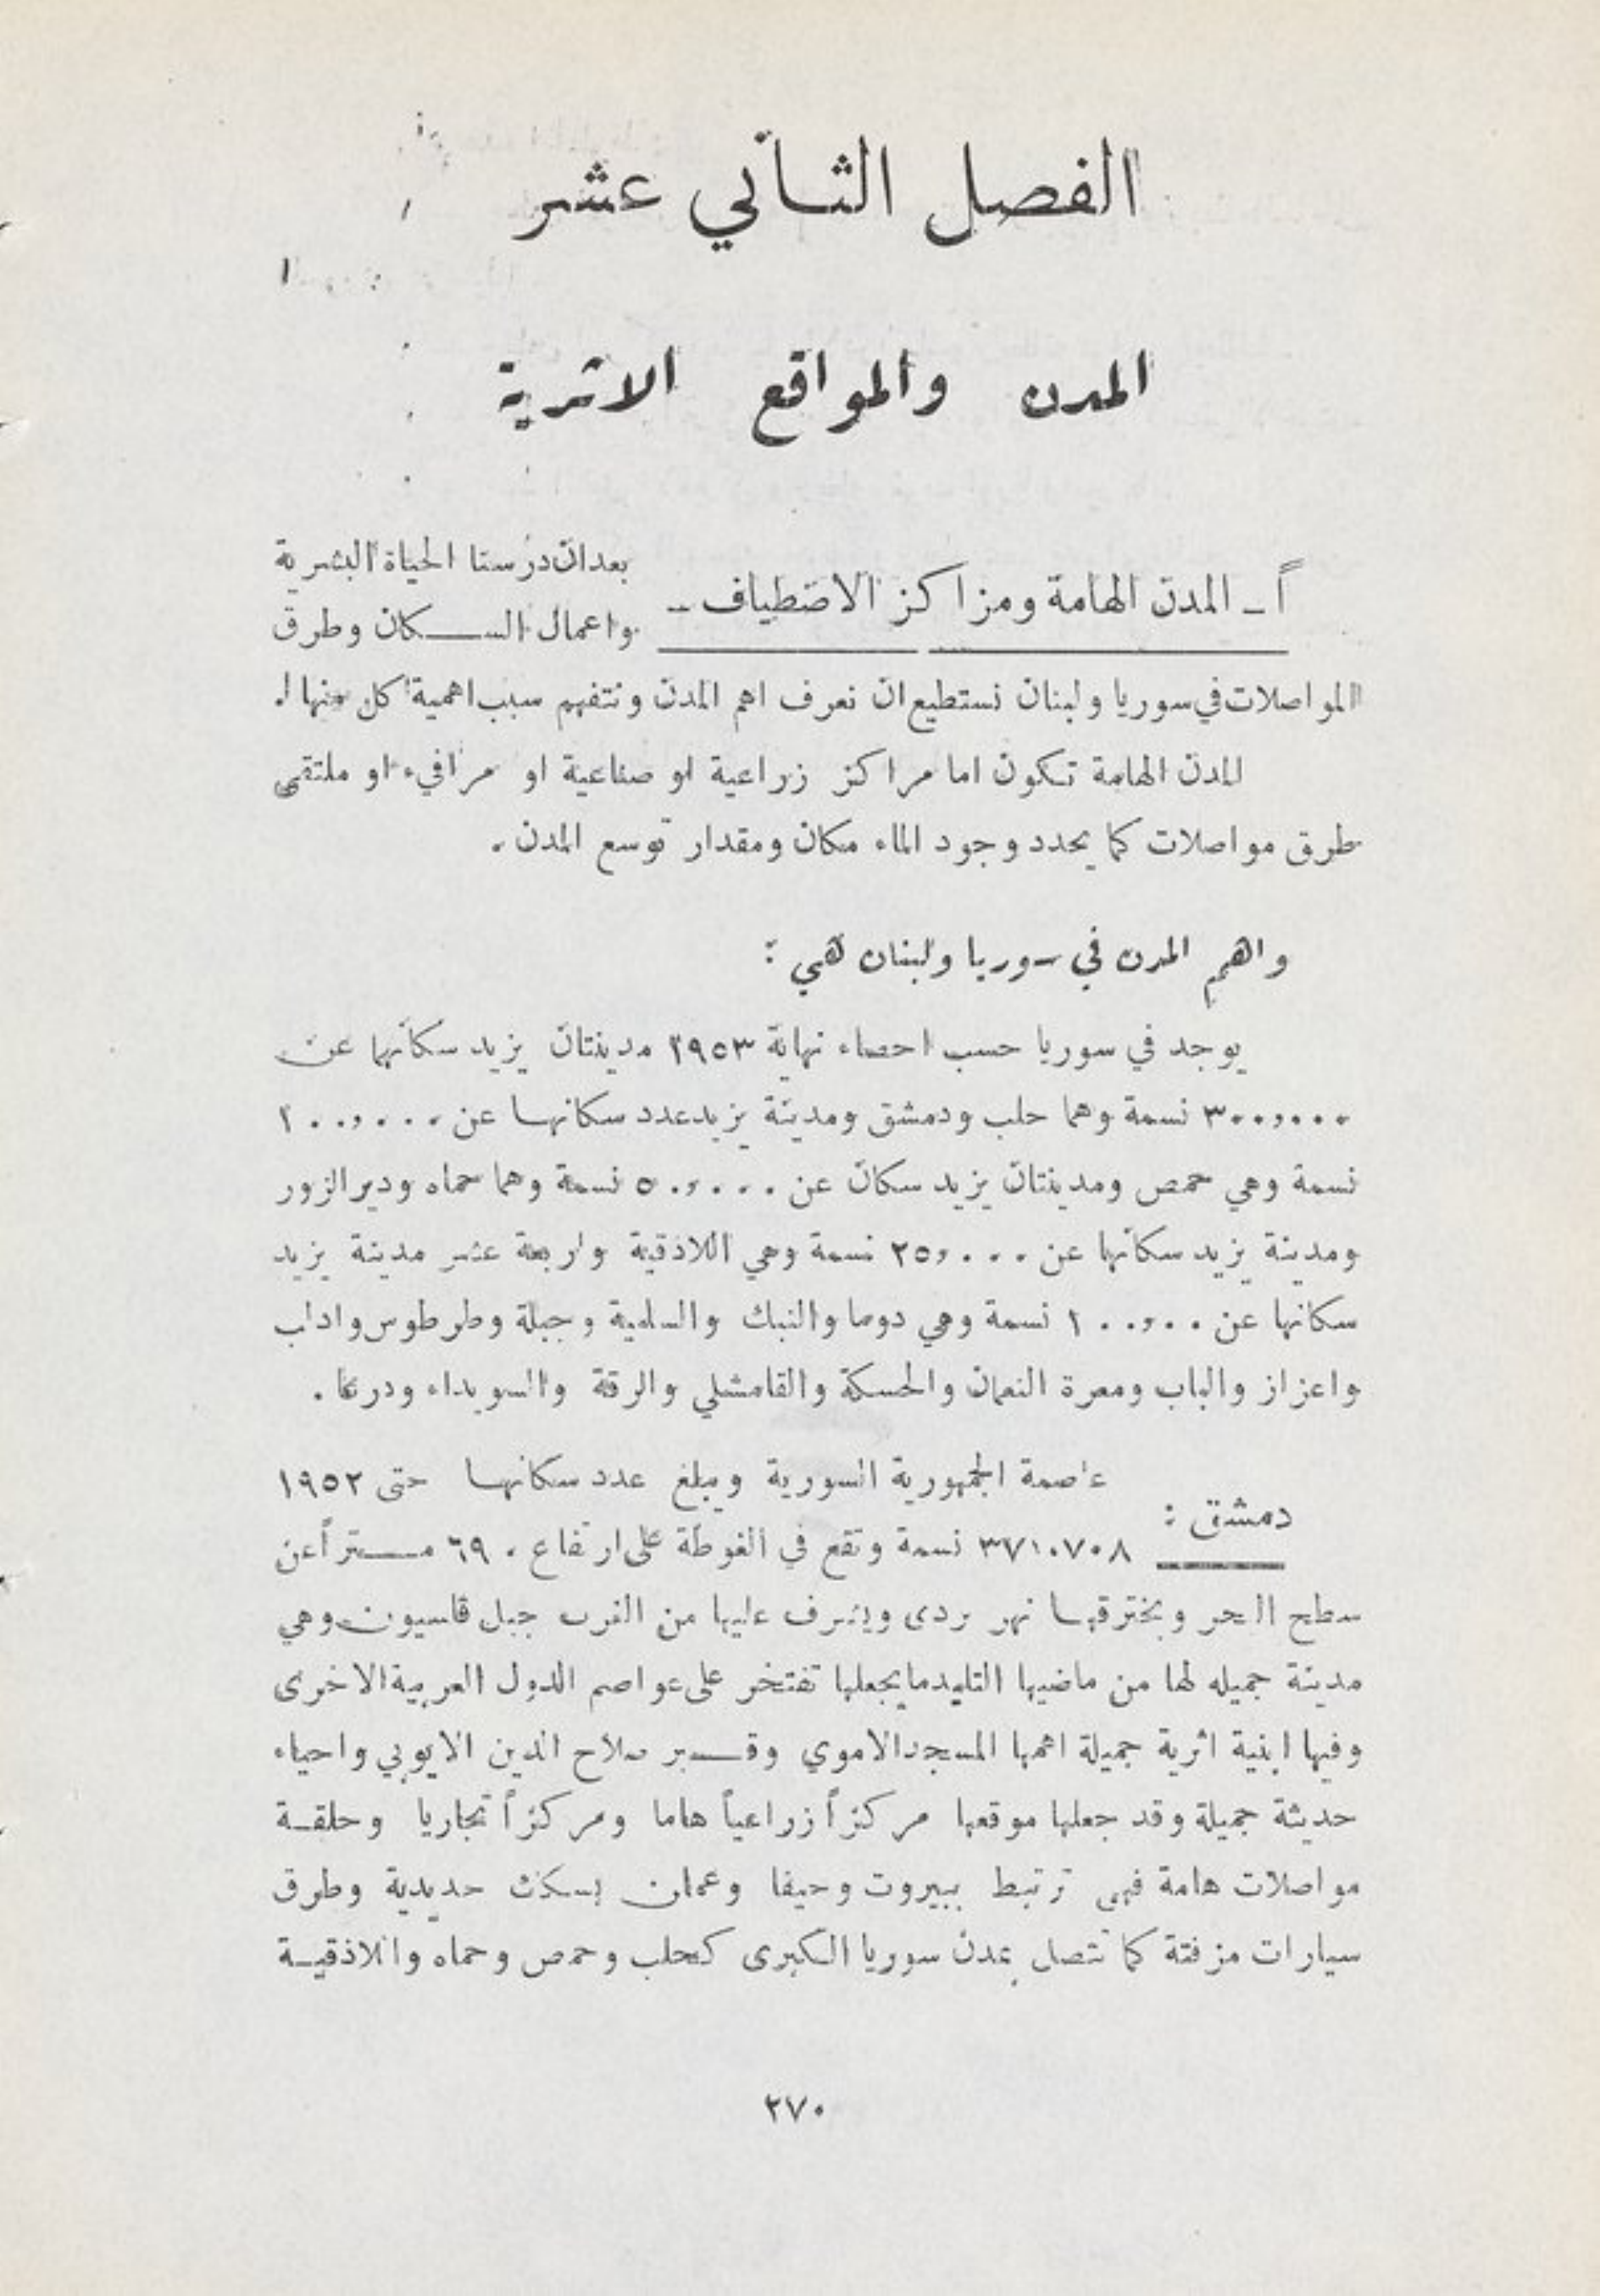 الفصل الثاني عشر
المدن والمواقع الاثرية
أ - المدن الهامة ومزاكز الاصطياف -
بعد ان درسنا الحياة البشرية
واعمال السكان وطرق
المواصلات في سوريا ولبنان نستطيع ان نعرف اهم المدن ونتفهم سبب اهمية كل منها .
المدن الهامة تكون اما مراكز زراعية او صناعية او مرافيء او ملتقى
طرق مواصلات كما يحدد وجود الماء مكان ومقدار توسع المدن .
واهم المدن في سوريا ولبنان هي :
يوجد في سوريا حسب احصاء نهاية ١٩٥٣ مدينتان يزيد سكانهما عن
٣٠٠,٠٠٠ نسمة وهما حلب ودمشق ومدينة يزيد عدد سكانها عن ١٠٠,٠٠٠
نسمة وهي حمص ومدينتان يزيد سكان عن ٥٠,٠٠٠ نسمة وهما حماه ودير الزور
ومدينة يزيد سكانها عن ٢٥,٠٠٠ نسمة وهي اللاذقية واربعة عشر مدينة يزيد
سكانها عن ١٠,٠٠٠ نسمة وهي دوما والنبك والسلمية وجبلة وطرطوس وادلب
واعزاز والباب ومعرة النعمان والحسكة والقامشلي والرقة والسويداء ودرعا .
دمشق :
عاصمة الجمهورية السورية ويبلغ عدد سكانها حتى ١٩٥٢
٣٧١٠٧٠٨ نسمة وتقع في الغوطة على ارتفاع ٦٩٠ متراً عن
سطح البحر ويخترقها نهر بردى ويشرف عليها من الغرب جبل قاسيون وهي
مدينة جميله لها من ماضيها التليد ما يجعلها تفتخر على عواصم الدول العربية الاخرى
وفيها ابنية اثرية جميلة اهمها المسجد الاموي وقبر صلاح الدين الايوبي واحياء
حديثة جميلة وقد جعلها موقعها مركزاً زراعياً هاما ومركزاً تجاريا وحلقة
مواصلات هامة فهي ترتبط ببيروت وحيفا وعمان بسكك حديدية وطرق
سيارات مزفتة كما تتصل بمدن سوريا الكبرى كحلب وحمص وحماه واللاذقية
٢٧٠